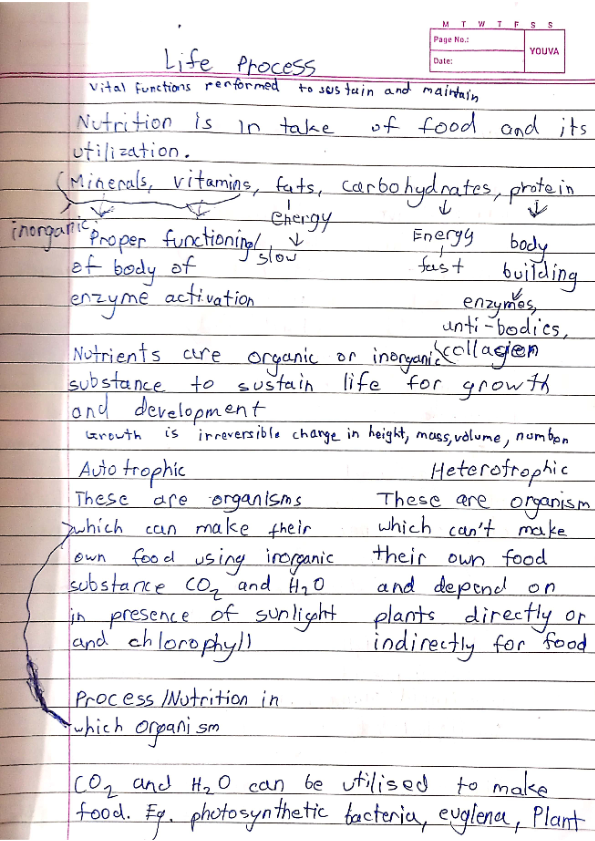 M T W T F S S
Page No.:
Date:
YOUVA
Life Process
Vital functions performed to sustain and maintain
Nutrition is in take of food and its
utilization.
(Minerals, vitamins, fats, carbohydrates, protein
inorganic
Proper functioning
of body of
enzyme activation
Energy
slow
Energy
fast
body
building
enzymes,
anti-bodies,
collagen
Nutrients are organic or inorganic
substance to sustain life for growth
and development
Growth is irreversible change in height, mass, volume,
Autotrophic
These are organisms
which can make their
own food using inorganic
substance CO₂ and H₂O
in presence of sunlight
and chlorophyll
Heterotrophic
These are organism
which can't make
their own food
and depend on
plants directly or
indirectly for food
Process/Nutrition in
which organism
CO₂ and H₂O can be utilised to make
food. Eg. photosynthetic bacteria, euglena, Plant